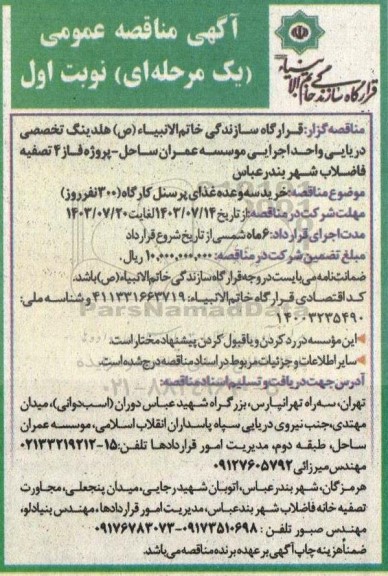 آگهی مناقصه عمومی
(یک مرحله‌ای) نوبت اول
قرارگاه سازندگی خاتم الانبیاء
مناقصه‌گزار: قرارگاه سازندگی خاتم الانبیاء (ص) هلدینگ تخصصی
دریایی واحد اجرایی موسسه عمران ساحل-پروژه فاز ۴ تصفیه
فاضلاب شهر بندرعباس
موضوع مناقصه: خرید سه وعده غذای پرسنل کارگاه (۳۰۰نفر روز)
مهلت شرکت در مناقصه: از تاریخ ۱۴۰۳/۰۷/۱۴ لغایت ۱۴۰۳/۰۷/۲۰
مدت اجرای قرارداد: ۶ ماه شمسی از تاریخ شروع قرارداد
مبلغ تضمین شرکت در مناقصه: ۱۰.۰۰۰.۰۰۰.۰۰۰ ریال.
ضمانتنامه می‌بایست در وجه قرارگاه سازندگی خاتم الانبیاء (ص) باشد.
کد اقتصادی قرارگاه خاتم الانبیاء: ۴۱۱۳۳۱۶۶۳۷۱۹ و شناسه ملی:
۱۴۰۰۳۲۳۵۴۹۰
این موسسه در رد کردن و یا قبول کردن پیشنهاد مختار است.
سایر اطلاعات و جزئیات مربوط در اسناد مناقصه درج شده است.
آدرس جهت دریافت و تسلیم اسناد مناقصه:
تهران، سه‌راه تهرانپارس، بزرگراه شهید عباس دوران (اسب‌دوانی)، میدان
مهتدی، جنب نیروی دریایی سپاه پاسداران انقلاب اسلامی، موسسه عمران
ساحل، طبقه دوم، مدیریت امور قراردادها تلفن: ۱۵-۰۲۱۳۳۲۱۹۲۱۲
مهندس میرزائی ۰۹۱۲۷۶۰۵۷۹۲
هرمزگان، شهر بندرعباس، اتوبان شهید رجایی، میدان پنجعلی، مجاورت
تصفیه خانه فاضلاب شهر بندرعباس، مدیریت امور قراردادها، مهندس بنیادلو،
مهندس صبور تلفن: ۰۹۱۷۳۵۱۰۶۹۸-۰۹۱۷۶۷۸۳۰۷۳
ضمناً هزینه چاپ آگهی بر عهده برنده مناقصه می‌باشد.
ParsNamadData